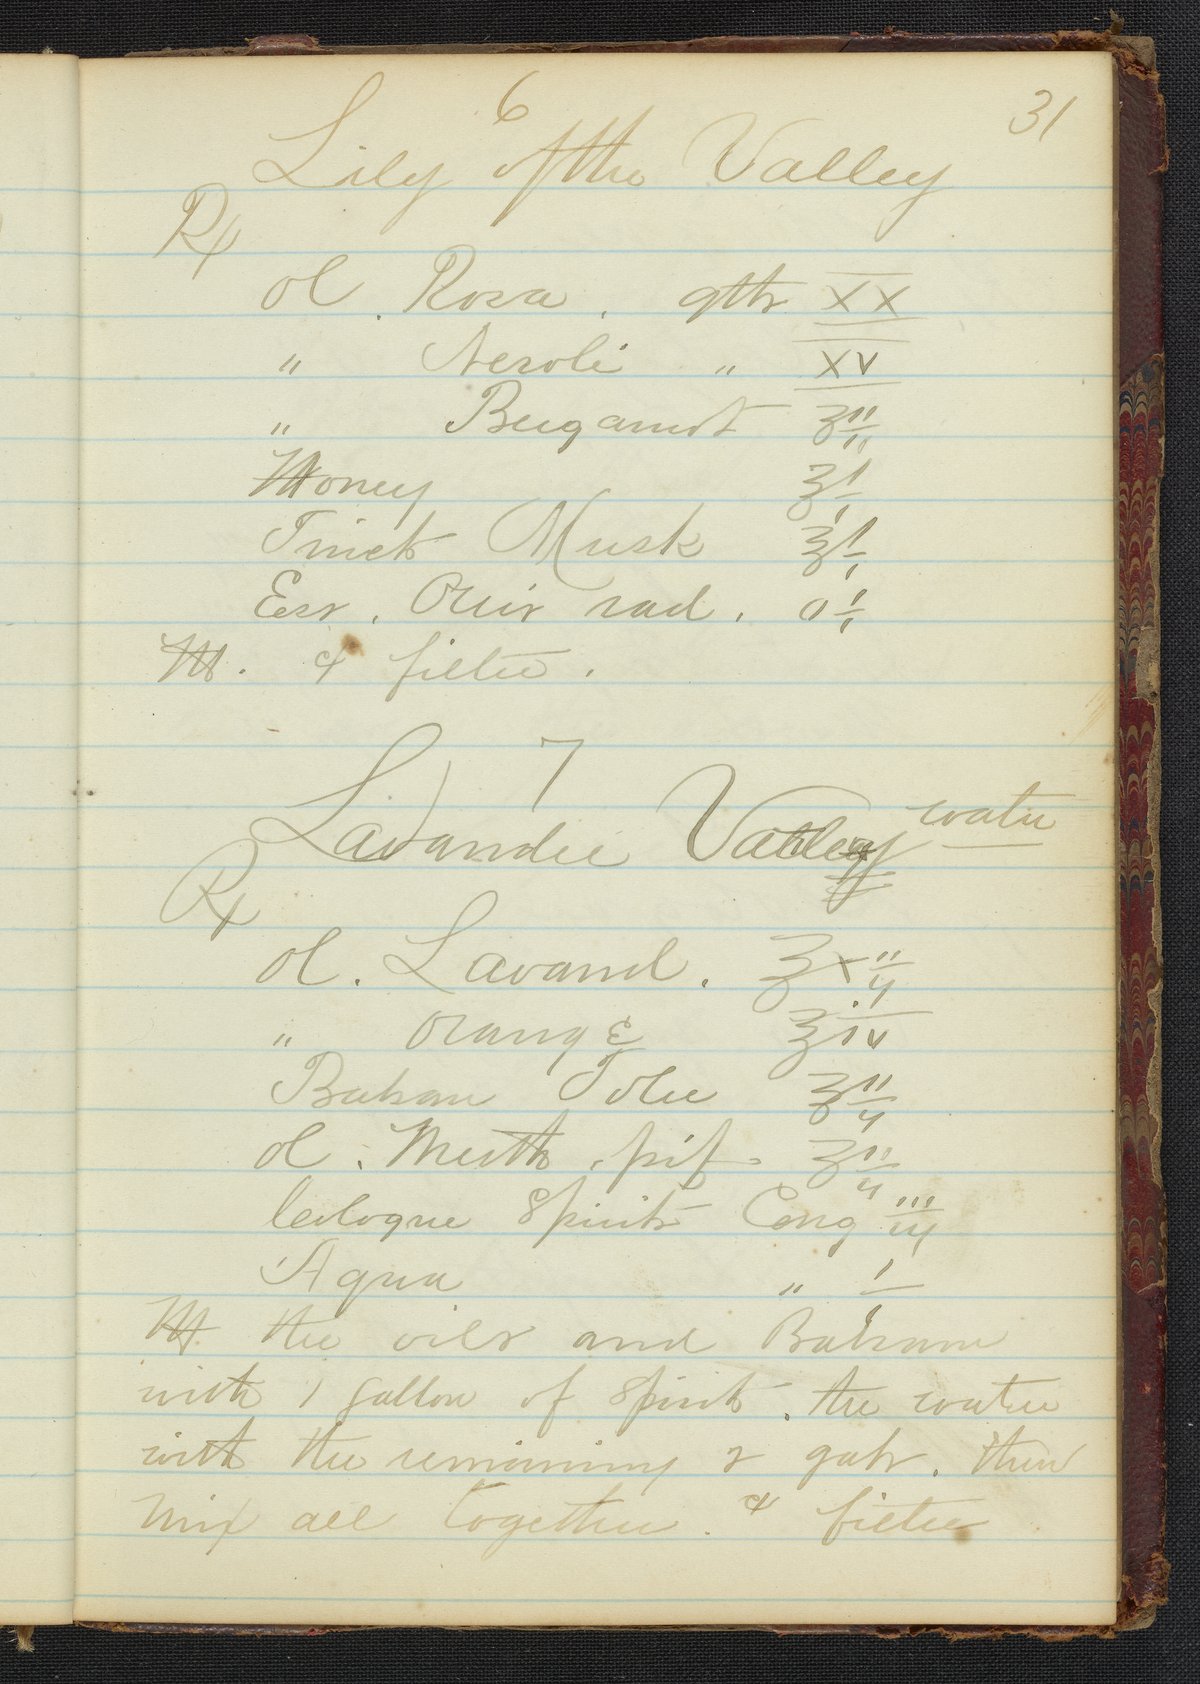 31
6
Lily of the Valley
Rx
Ol. Rosa. gtts XX
" Neroli " XV
" Bergamot ʒii
Honey ℥i
Tinct Musk ʒi
Ess. Orris rad. Oi
M. & filter.
7
Lavander Valley water
Rx
Ol. Lavand. ℥xii
" Orange ℥iv
Balsam Tolu ʒii
Ol. Menth. pip. ʒii
Cologne Spirits Cong iii
Aqua " i
M the oils and Balsam
with 1 gallon of Spirits. the water
with the remaining 2 gals. then
mix all together. & filter